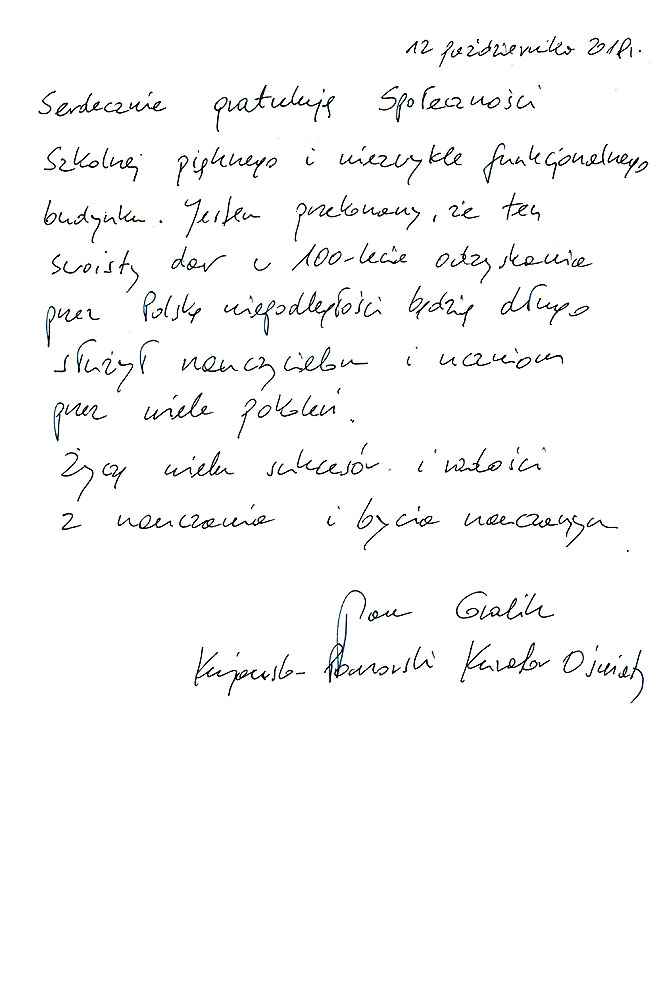 12 października 2018r.
Serdecznie gratuluję Społeczności
Szkolnej pięknego i niezwykle funkcjonalnego
budynku. Jestem przekonany, że ten
swoisty dar w 100-lecie odzyskania
przez Polskę niepodległości będzie długo
służył nauczycielom i uczniom
przez wiele pokoleń.
Życzę wielu sukcesów i radości
z nauczania i bycia nauczanym.
Marek Gralik
Kujawsko-Pomorski Kurator Oświaty